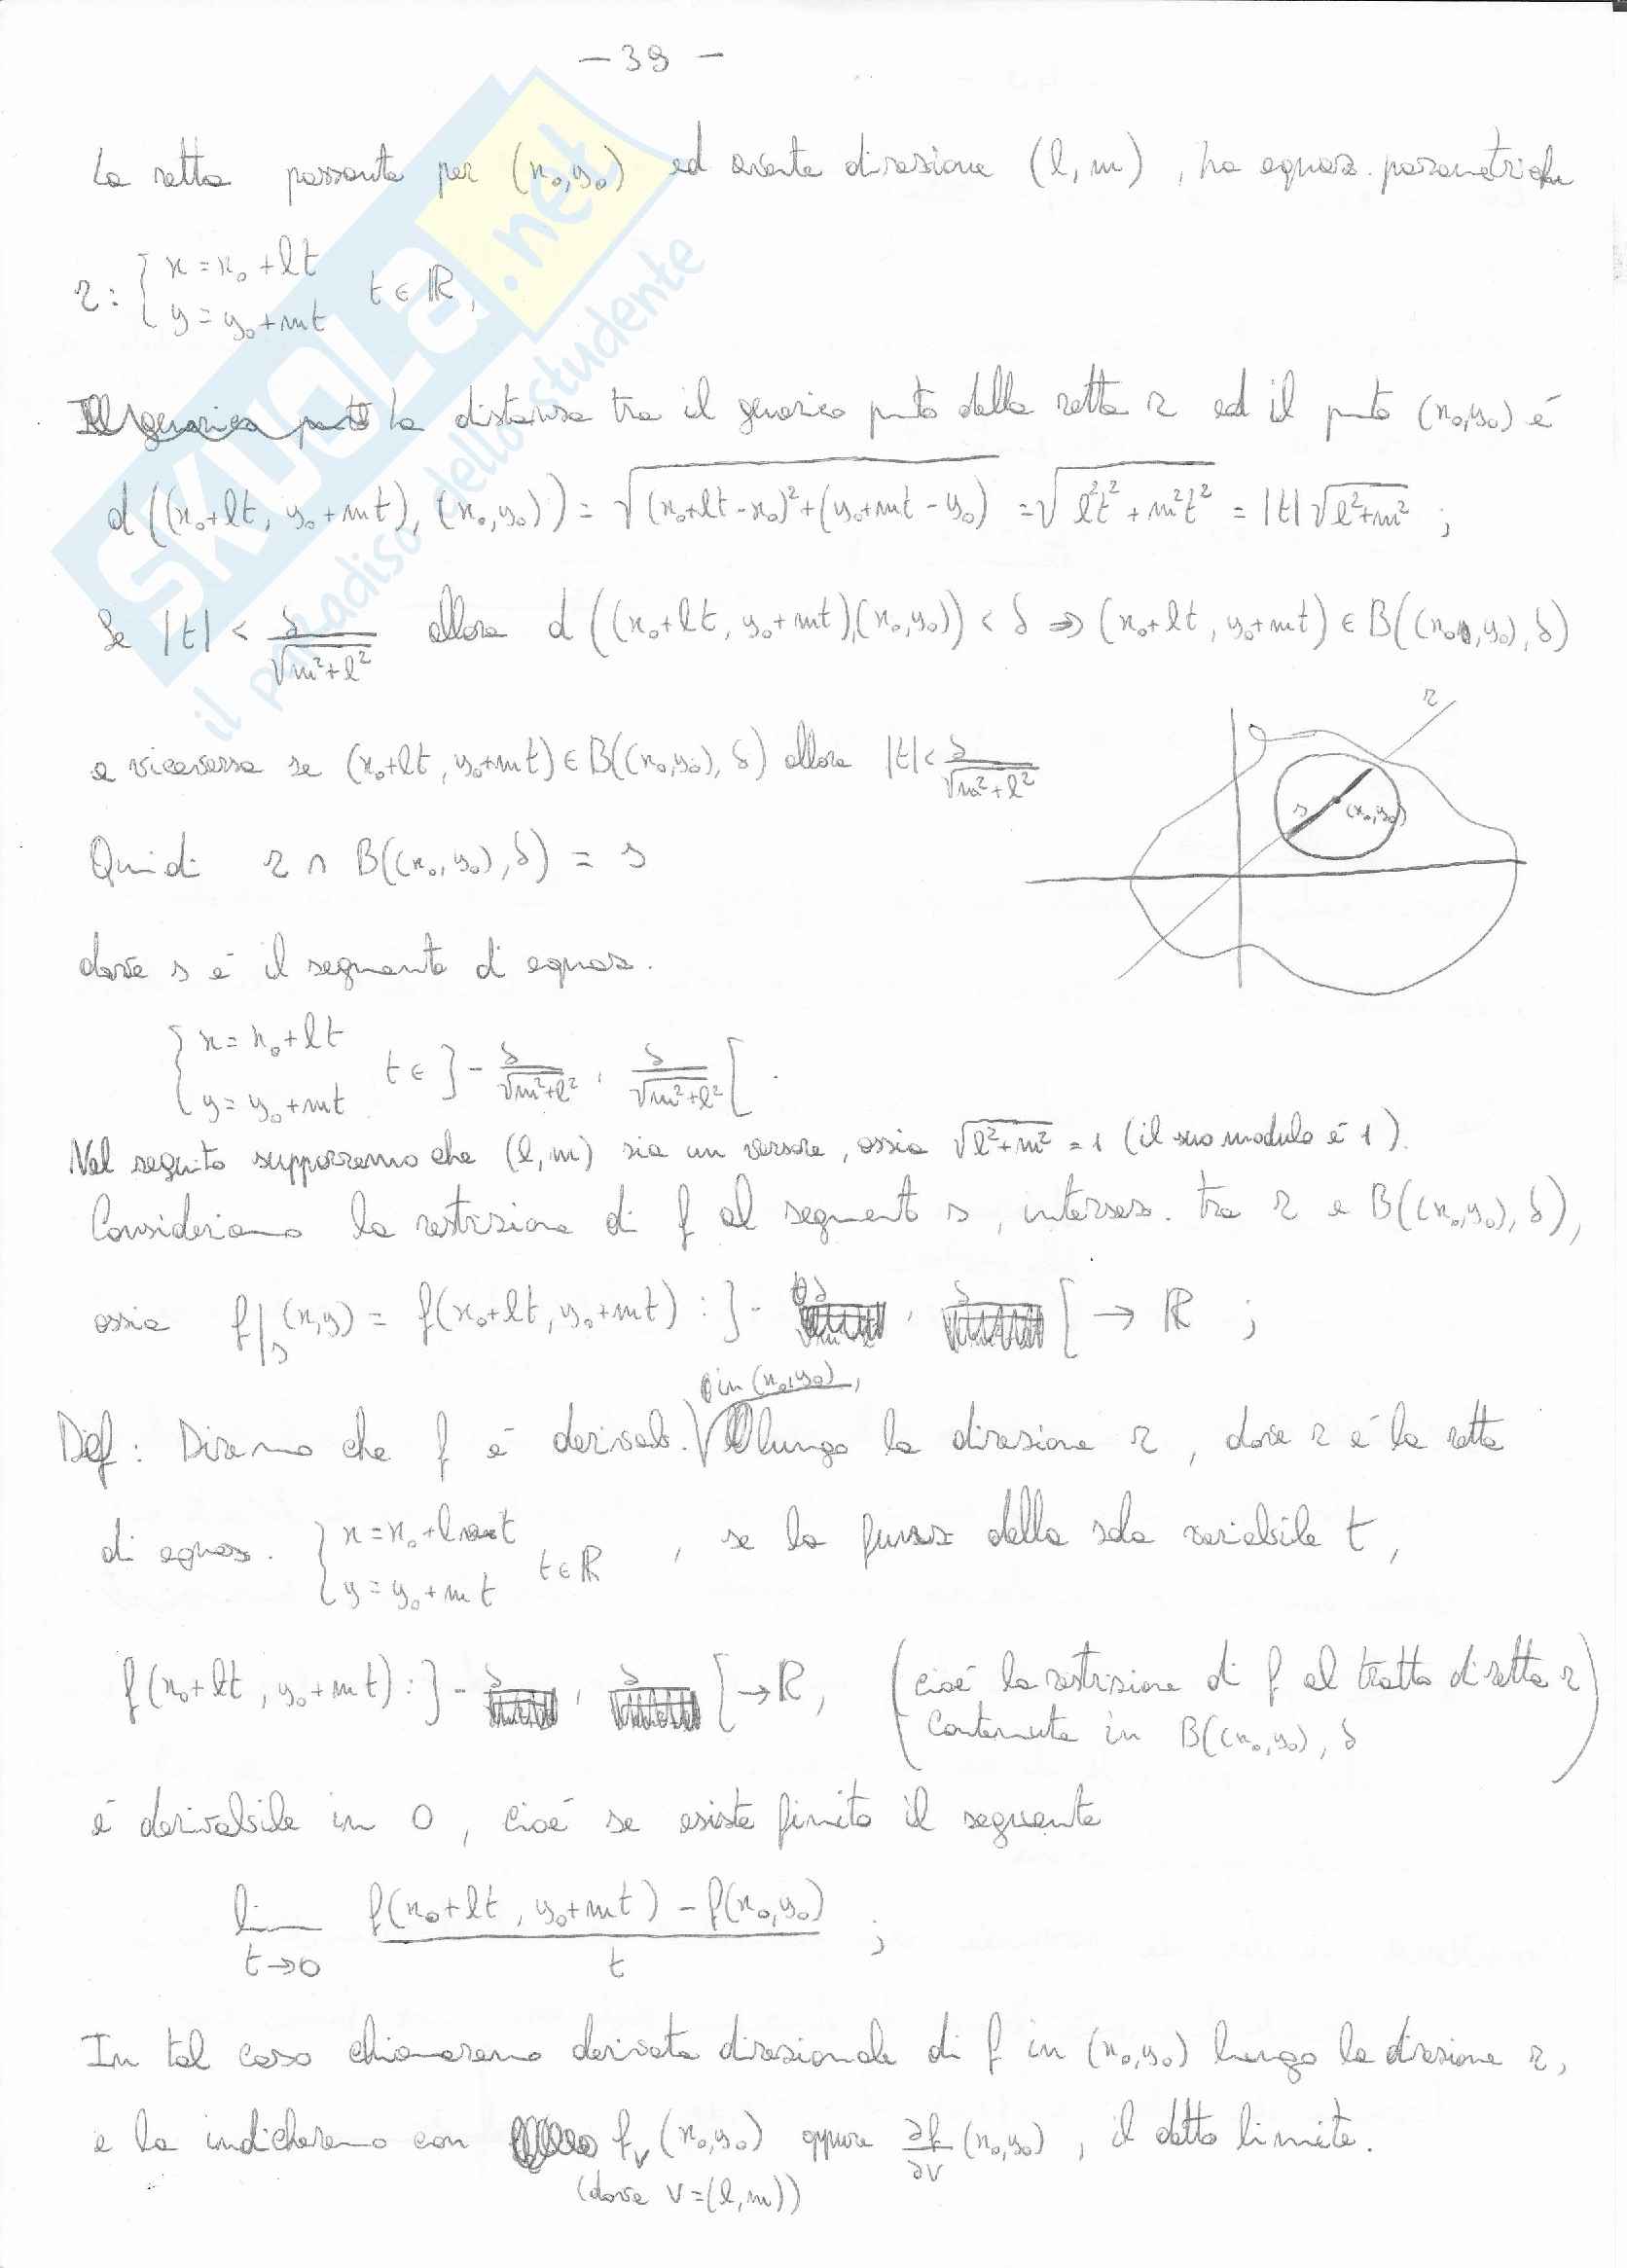 - 39 -
La retta passante per (x₀,y₀) ed avente direzione (l, m), ha equaz. parametriche
r: { x = x₀ + lt
y = y₀ + mt t ∈ ℝ,
La distanza tra il generico punto della retta r ed il punto (x₀,y₀) é
d((x₀+lt, y₀+mt), (x₀,y₀)) = √((x₀+lt-x₀)²+(y₀+mt-y₀)) = √(l²t²+m²t²) = |t|√(l²+m²) ;
Se |t| < δ/√(m²+l²) allora d((x₀+lt, y₀+mt),(x₀,y₀)) < δ ⇒ (x₀+lt, y₀+mt) ∈ B((x₀,y₀), δ)
r
e viceversa se (x₀+lt, y₀+mt) ∈ B((x₀,y₀), δ) allora |t| < δ/√(m²+l²)
s (x₀,y₀)
Quindi r ∩ B((x₀,y₀), δ) = s
dove s é il segmento di equaz.
{ x = x₀ + lt
y = y₀ + mt t ∈ ]- δ/√(m²+l²), δ/√(m²+l²) [ .
Nel seguito supporremo che (l, m) sia un versore, ossia √(l²+m²) = 1 (il suo modulo é 1).
Consideriamo la restrizione di f al segmento s, intersez. tra r e B((x₀,y₀), δ),
ossia f|s (x,y) = f(x₀+lt, y₀+mt) : ]- δ, δ [ → ℝ ;
in (x₀,y₀),
Def: Diremo che f é derivab. lungo la direzione r, dove r é la retta
di equaz. { x = x₀ + lt
y = y₀ + mt t ∈ ℝ , se la funz. della sola variabile t,
f(x₀+lt, y₀+mt) : ]- δ, δ [ → ℝ, (cioé la restrizione di f al tratto di retta r
contenuto in B((x₀,y₀), δ )
é derivabile in 0, cioé se esiste finito il seguente
lim t→0 f(x₀+lt, y₀+mt) - f(x₀,y₀) / t ;
In tal caso chiameremo derivata direzionale di f in (x₀,y₀) lungo la direzione r,
e la indicheremo con f_v (x₀,y₀) oppure ∂f/∂v (x₀,y₀), il detto limite.
(dove v=(l,m))
SKUOLA.net
il paradiso dello studente